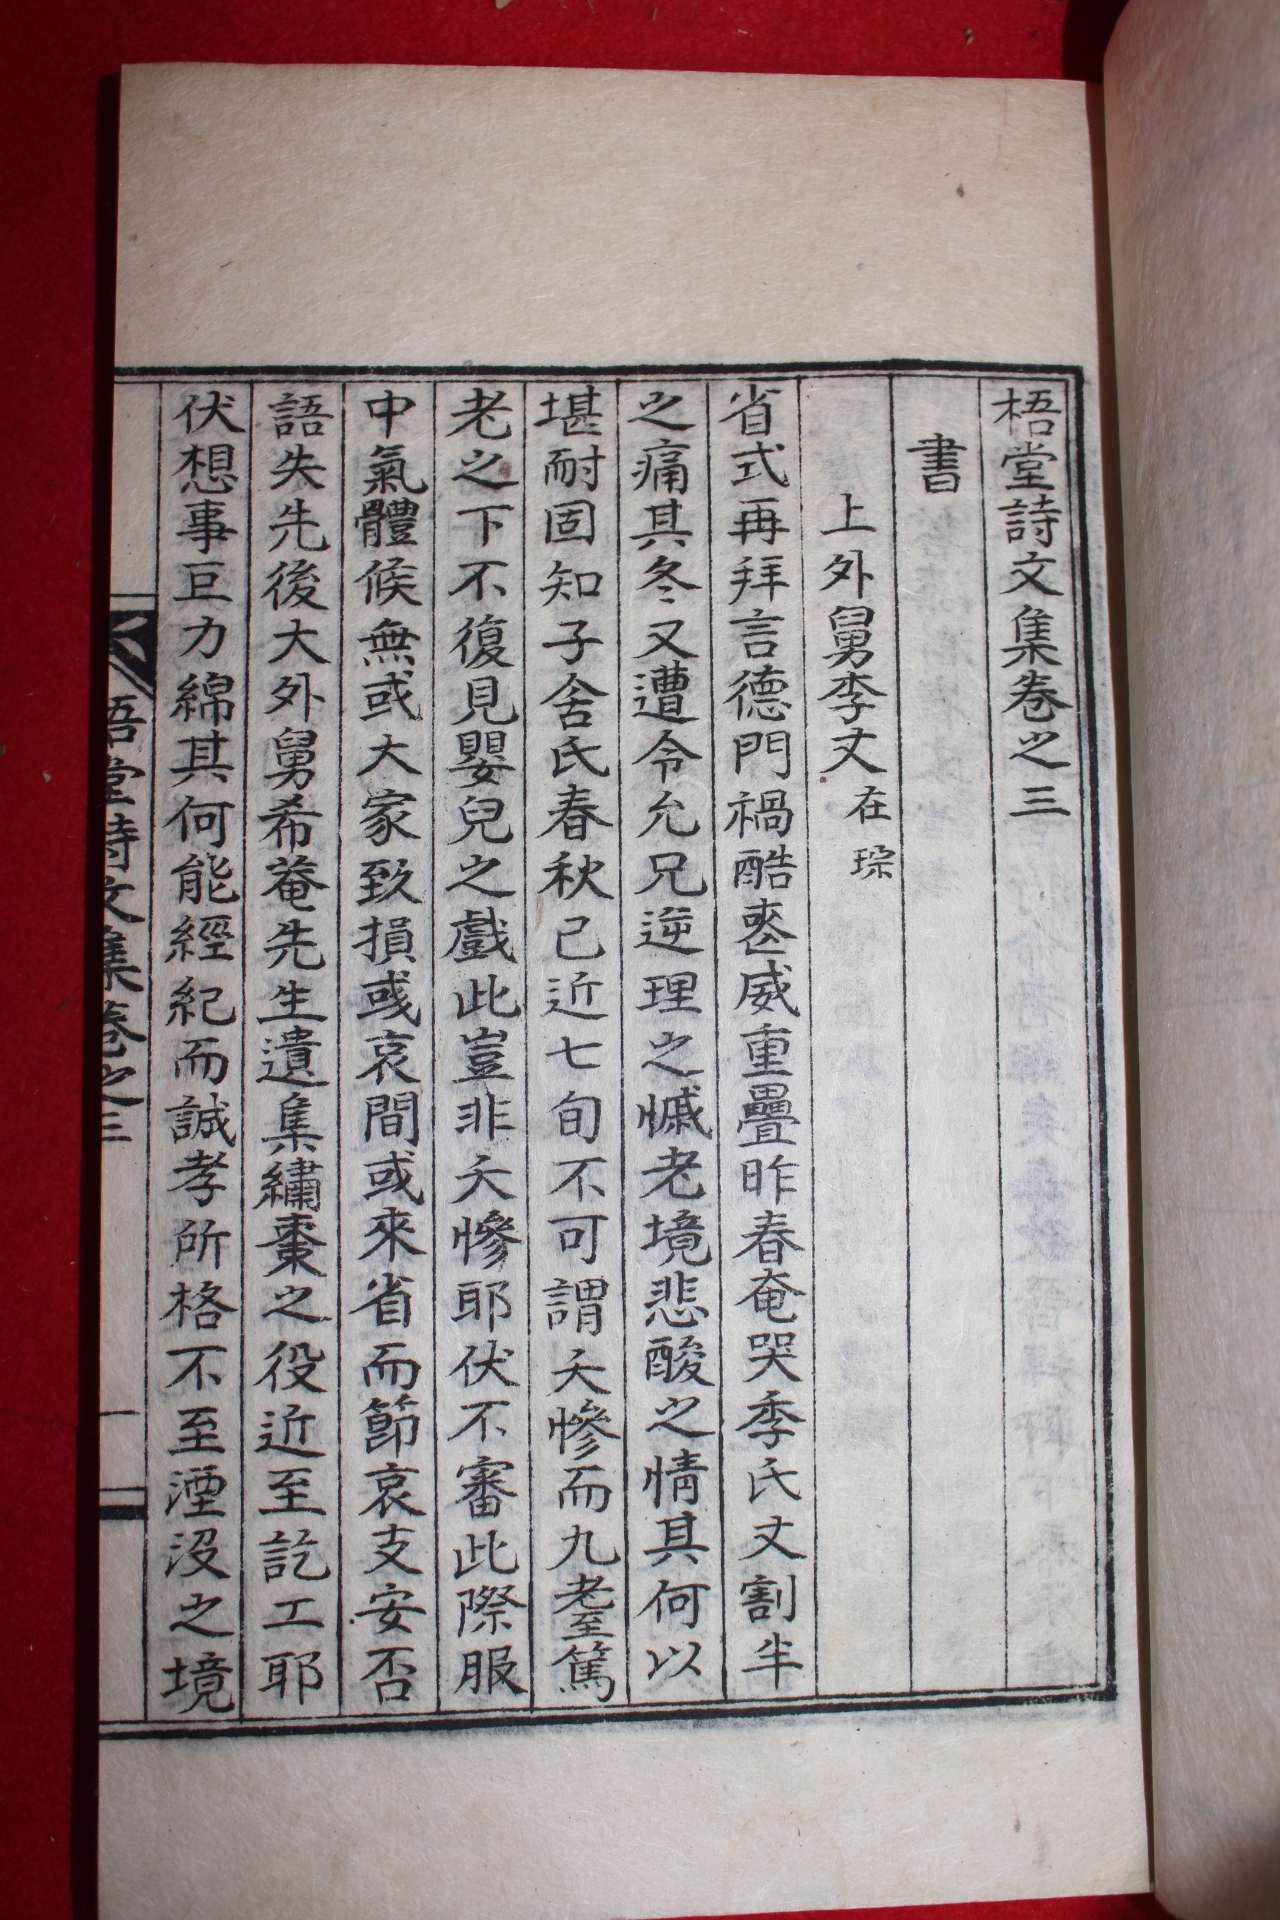 梧堂詩文集卷之三
書
上外舅李丈在琮
省式再拜言德門禍酷喪威重疊昨春奄哭季氏丈割半
之痛其冬又遭令允兄逆理之慽老境悲酸之情其何以
堪耐固知子舍氏春秋已近七旬不可謂夭慘而九耋篤
老之下不復見嬰兒之戲此豈非夭慘耶伏不審此際服
中氣體候無或大家致損或哀間或來省而節哀支安否
語失先後大外舅希菴先生遺集繡棗之役近至訖工耶
伏想事巨力綿其何能經紀而誠孝所格不至湮沒之境
梧堂詩文集卷之三 一